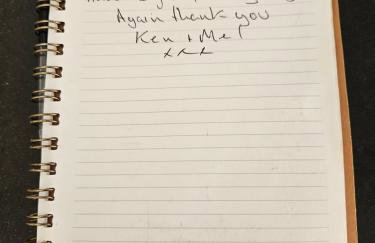 Again thank you
Ken + Mel
xxx